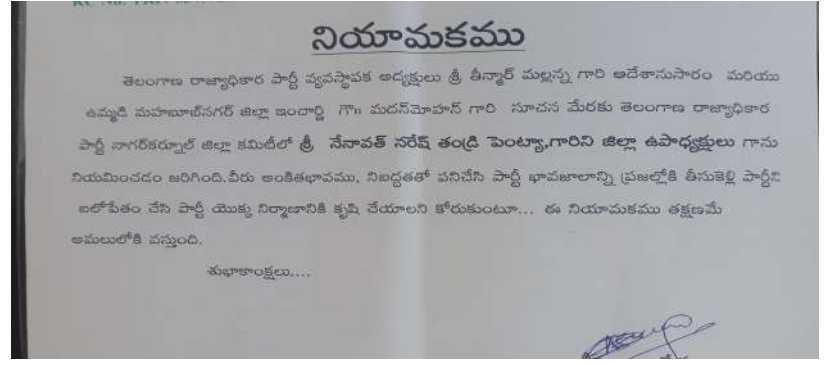 నియామకము
తెలంగాణ రాజ్యాధికార పార్టీ వ్యవస్థాపక అధ్యక్షులు శ్రీ తీన్మార్ మల్లన్న గారి ఆదేశానుసారం మరియు
ఉమ్మడి మహబూబ్‌నగర్ జిల్లా ఇంచార్జి గౌ॥ మదన్‌మోహన్ గారి సూచన మేరకు తెలంగాణ రాజ్యాధికార
పార్టీ నాగర్‌కర్నూల్ జిల్లా కమిటీలో శ్రీ నేనావత్ నరేష్ తండ్రి పెంట్యా,గారిని జిల్లా ఉపాధ్యక్షులు గాను
నియమించడం జరిగింది.వీరు అంకితభావము, నిబద్ధతతో పనిచేసి పార్టీ భావజాలాన్ని ప్రజల్లోకి తీసుకెళ్లి పార్టీని
బలోపేతం చేసి పార్టీ యొక్క నిర్మాణానికి కృషి చేయాలని కోరుకుంటూ... ఈ నియామకము తక్షణమే
అమలులోకి వస్తుంది.
శుభాకాంక్షలు....